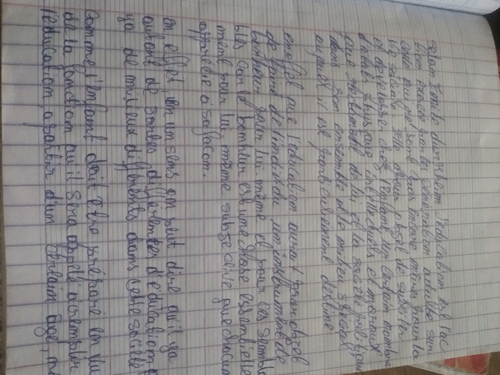 Selon Emile durkheim l'éducation est l'ac
tion exercé par la génération adulte sur
celle qui ne sont pas encore mure pour la
vie sociale son objet de susciter
et développer chez l'enfant un certain nombre
d'états physique intellectuels et moraux
que reclament de lui et la société politique
dans son ensemble et le milieu spécial
auquel il est particulièrement destiné
que l'education aurait pour objet
de faire de l'individu un instrument de
bonheur pour lui même et pour les sembla
bles car le bonheur est une chose
pour lui même que chacun
apprécie a sa façon.
en effet en un sens on peut dire qu'il ya
autant de sortes différentes d'éducation
ya de milieux différents dans cette société
Comme l'enfant doit être préparé en vu
de la fonction qu'il sera appelé a remplir
l'education a partir d'un certain age, ne